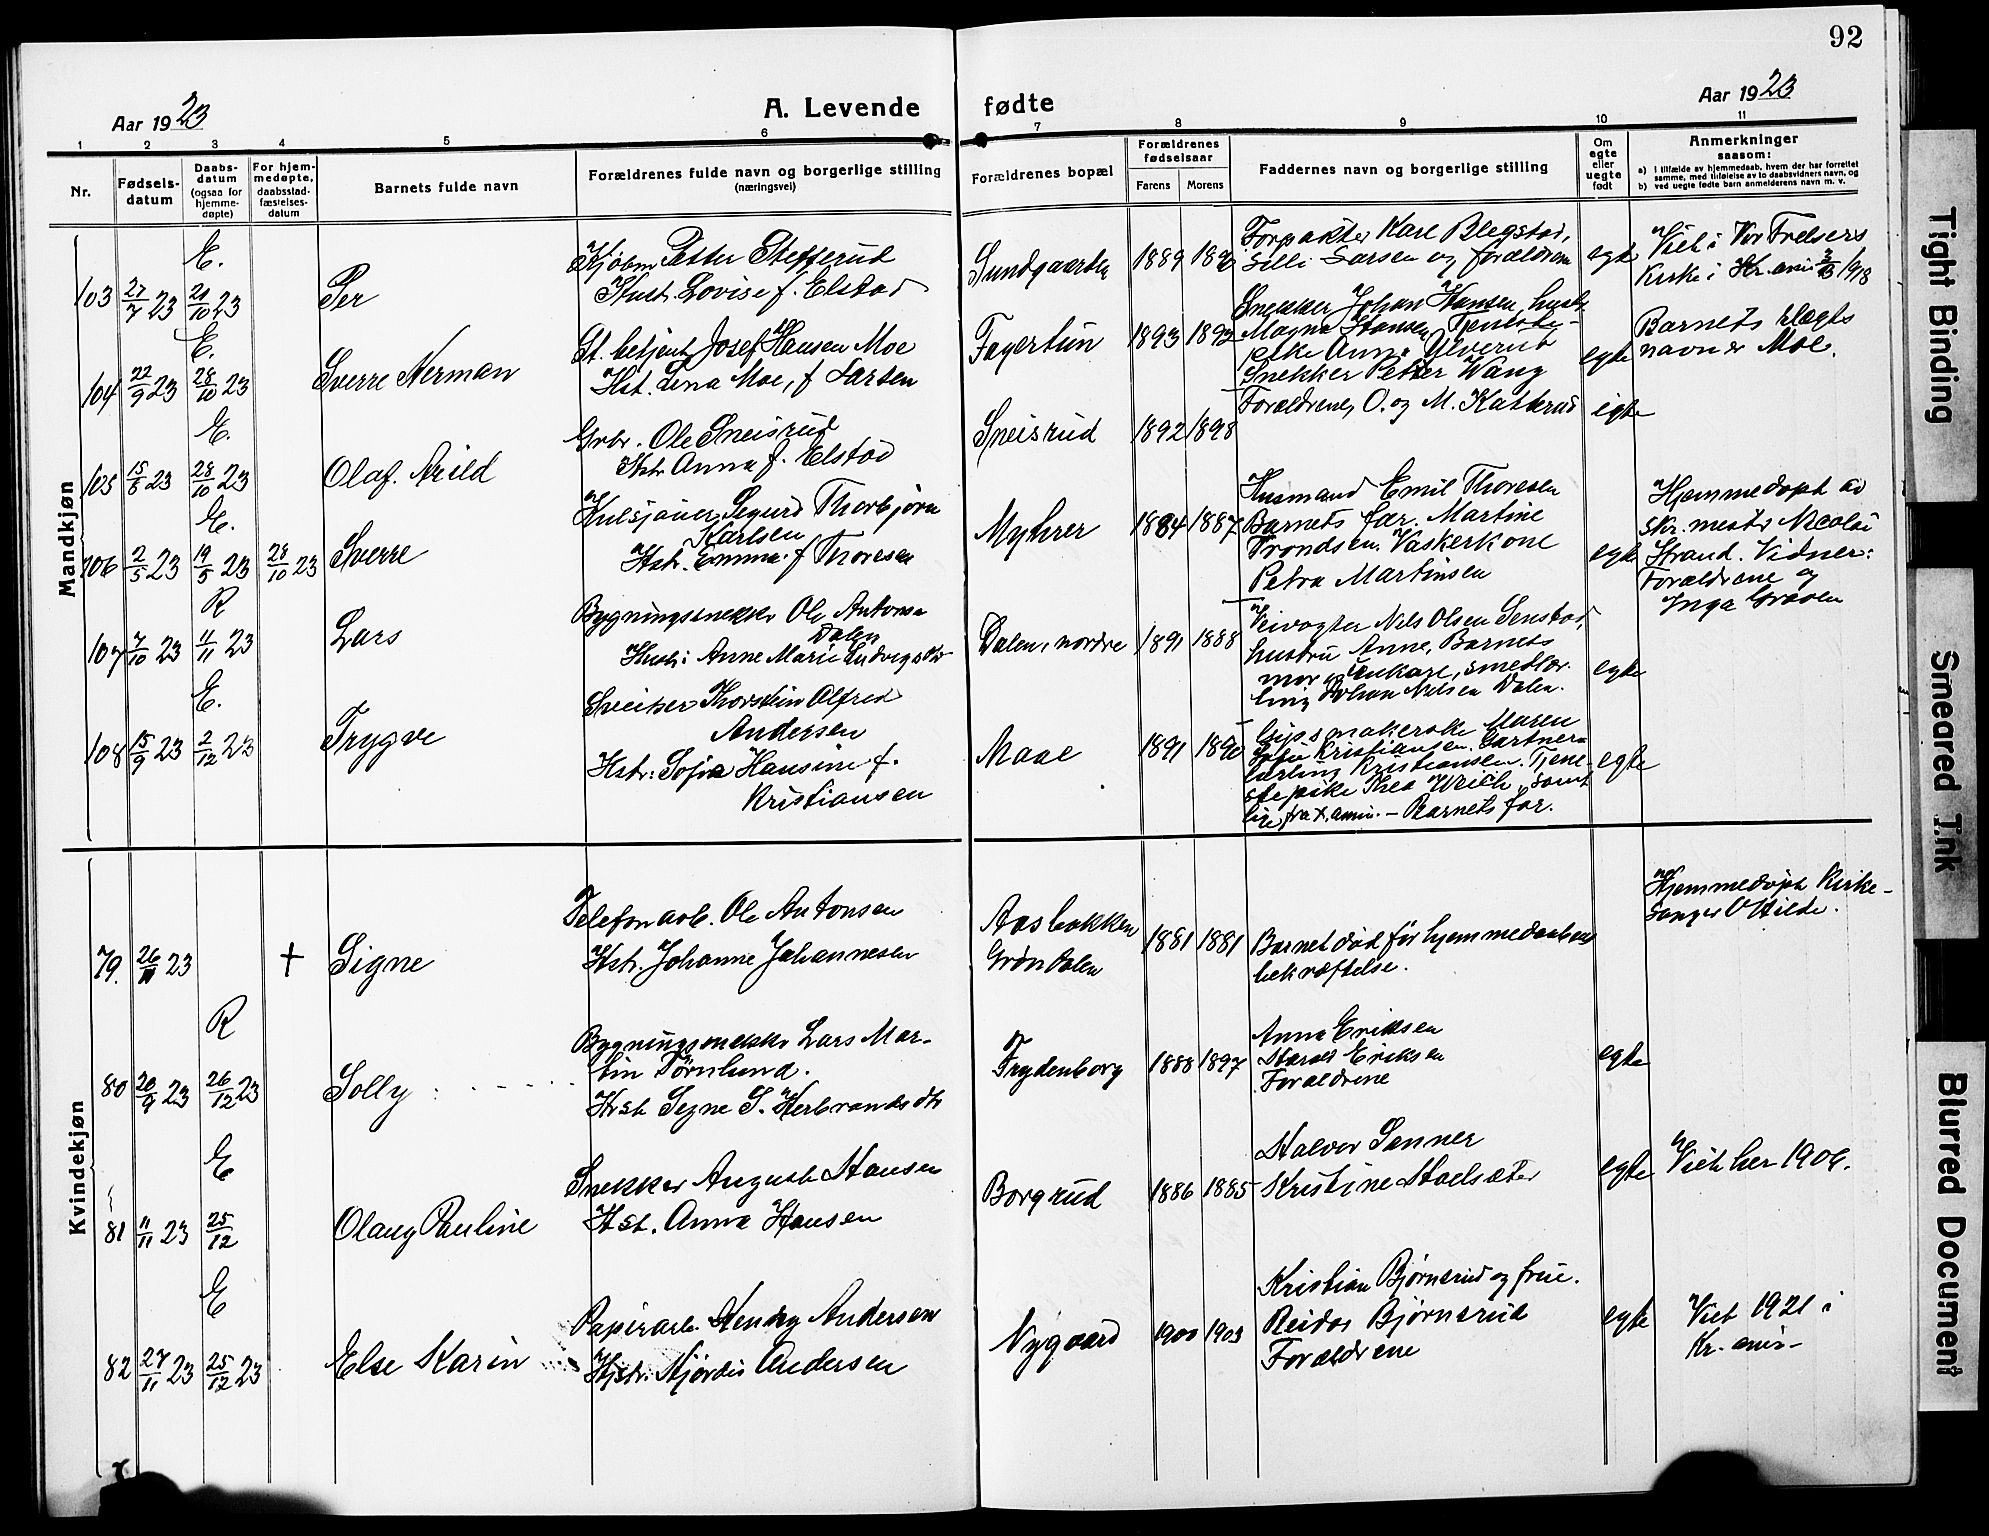 92
Aar 1923
A. Levende fødte
Aar 1923
1 2 3 4 5 6 7 8 9 10 11
Nr.
Fødsels-
datum
Daabs-
datum
(ogsaa for
hjemme-
døpte)
For hjem-
medøpte,
daabsstad-
fæstelses-
datum
Barnets fulde navn
Forældrenes fulde navn og borgerlige stilling
(næringsvei)
Forældrenes bopæl
Forældrenes
fødselsaar
Farens Morens
Faddernes navn og borgerlige stilling
Om
egte
eller
uegte
født
Anmerkninger
saasom:
a) i tilfælde av hjemmedaab, hvem der har forrettet
samme, med tilføielse av to daabsvidners navn, og
b) ved uegte fødte barn anmelderens navn m. v.
Mandkjøn
E.
103 27/7 23 21/10 23
Per
Kjøbm Petter Stefferud
Hust. Lovise f. Elstad
Sundgaarden
1889 1890
Forpakter Karl Blegstad,
Lilli Larsen og forældrene
egte
Viet i Vor Frelsers
Kirke i Kr.ania 1918
E.
104 22/9 23 28/10 23
Sverre Herman
St. betjent Josef Hansen Moe
Hst. Lena Moe, f Larsen
Fagertun
1893 1892
Snekker Johan Hansen, hustr.
Magna Hansen, Tjeneste-
pike Anna Ulverud
Snekker Petter Wang
egte
Barnets slegts
navn er Moe.
E.
105 15/8 23 28/10 23
Olaf Arild
Grbr. Ole Sneisrud
Hstr Anna f. Elstad
Sneisrud
1892 1898
Forældrene, O. og M. Katterud
egte
E.
106 2/5 23 19/5 23 28/10 23
Sverre
Kulsjauer Sigurd Thorbjørn
Karlsen
Hstr. Emma f Thoresen
Myhrer
1884 1887
Husmand Emil Thoresen
Barnets far. Martine
Trondsen. Vaskerkone
Petra Martinsen
egte
Hjemmedøpt av
Skr.mester Nicolai
Strand. Vidner:
Forældrene og
Inga Graven
R
107 7/10 23 11/11 23
Lars
Bygningssnekker Ole Antonsen
Dalen
Hustru Anne Marie Ludvigsdtr
Dalen, nordre
1891 1888
Veivogter Nils Olsen Senstad,
hustru Anne, Barnets
mor, Enkare, smedlær-
ling Johan Nilsen Dalen.
egte
E.
108 15/9 23 2/12 23
Trygve
Sveitser Thorstein Olfred
Andersen
Hstr. Sofie Hansine f.
Kristiansen
Maae
1891 1890
Gipsmakerske Maren
Sofie Kristiansen. Gartner-
lærling Kristiansen. Tjene-
stepike Thea Weich, samt
lige fra Kr.ania. — Barnets far.
egte
Kvindekjøn
79. 26/11 23
+
Signe
Telefonarb. Ole Antonsen
Hstr. Johanne Johannesen
Aasbakken
Grøndalen
1881 1881
Barnet død før hjemmedaabens
bekræftelse.
Hjemmedøpt Kirke-
sanger O Hilde.
R
80 20/9 23 26/12 23
Solly
Bygningssnekker Lars Mar-
tin Tørnlund.
Hst Signe S. Herbrandsdtr
Frydenborg
1888 1897
Anna Eriksen
Harald Eriksen
Forældrene
egte
E
81 11/11 23 25/12
Olaug Pauline
Snekker August Hansen
Hst. Anna Hansen
Borgrud
1886 1885
Halvor Sanner
Kristine Stadsæter
egte
Viet her 1906.
E
82 27/11 23 25/12 23
Else Karin
Papirarb. Henry Andersen
Hstr. Hjørdis Andersen
Nygaard
1900 1903
Kristian Bjørnsrud og frue.
Reidar Bjørnsrud
Forældrene
egte
Viet 1921 i
Kr. ania-
Tight Binding
Smeared Ink
Blurred Document